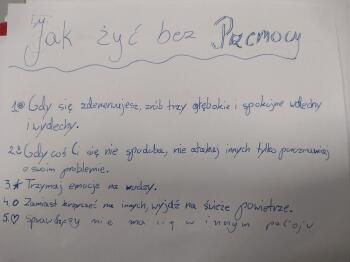 Jak żyć bez Przemocy
1. Gdy się zdenerwujesz, zrób trzy głębokie i spokojne wdechy
i wydechy.
2. Gdy coś Ci się nie spodoba, nie atakuj innych tylko porozmawiaj
o swoim problemie.
3. Trzymaj emocje na wodzy.
4. Zamiast krzyczeć na innych, wyjdź na świeże powietrze.
5. sprawdzący nie ma cię w innym pokoju